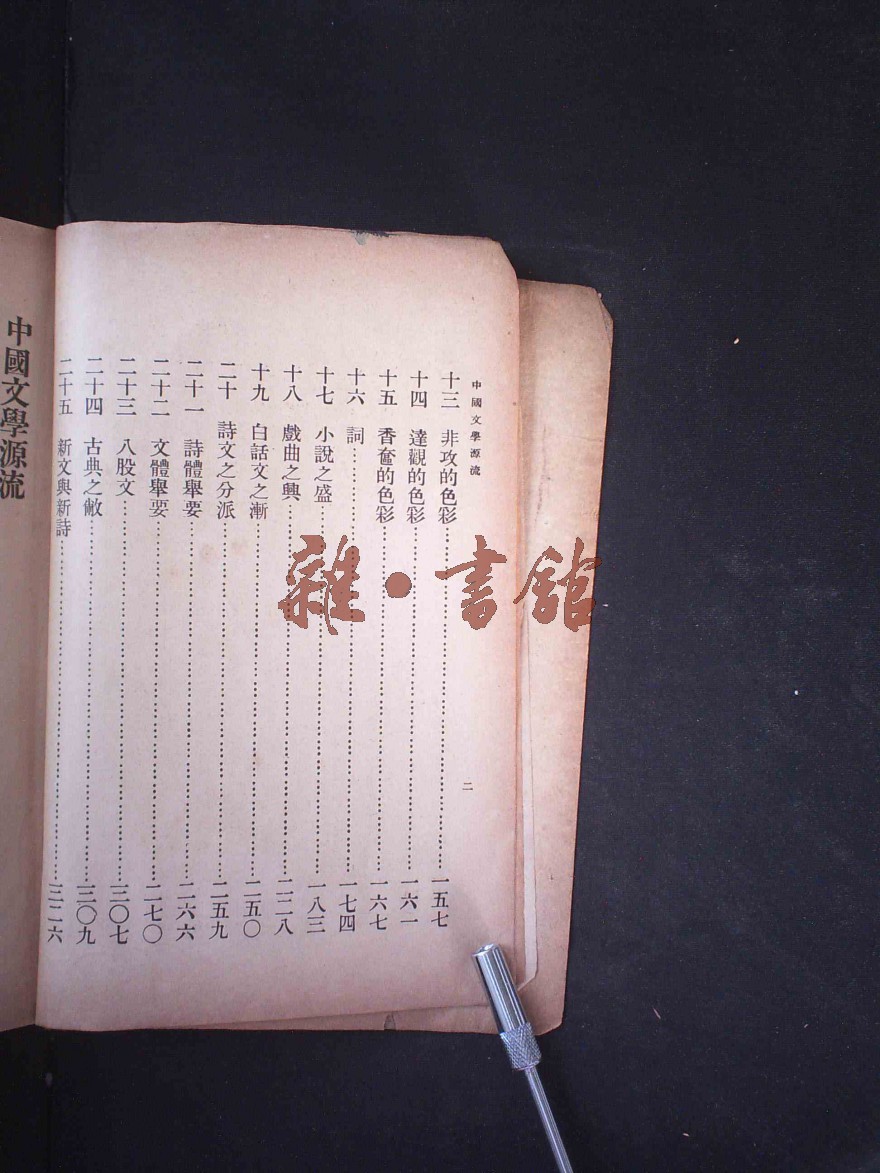 中國文學源流
十三 非攻的色彩 一五七
十四 達觀的色彩 一六一
十五 香奩的色彩 一六七
十六 詞 一七四
十七 小說之盛 一八三
十八 戲曲之興 二二八
十九 白話文之漸 二五〇
二十 詩文之分派 二五九
二十一 詩體舉要 二六六
二十二 文體舉要 二七〇
二十三 八股文 三〇七
二十四 古典之敝 三〇九
二十五 新文與新詩 三二六
二
中國文學源流
雜·書館